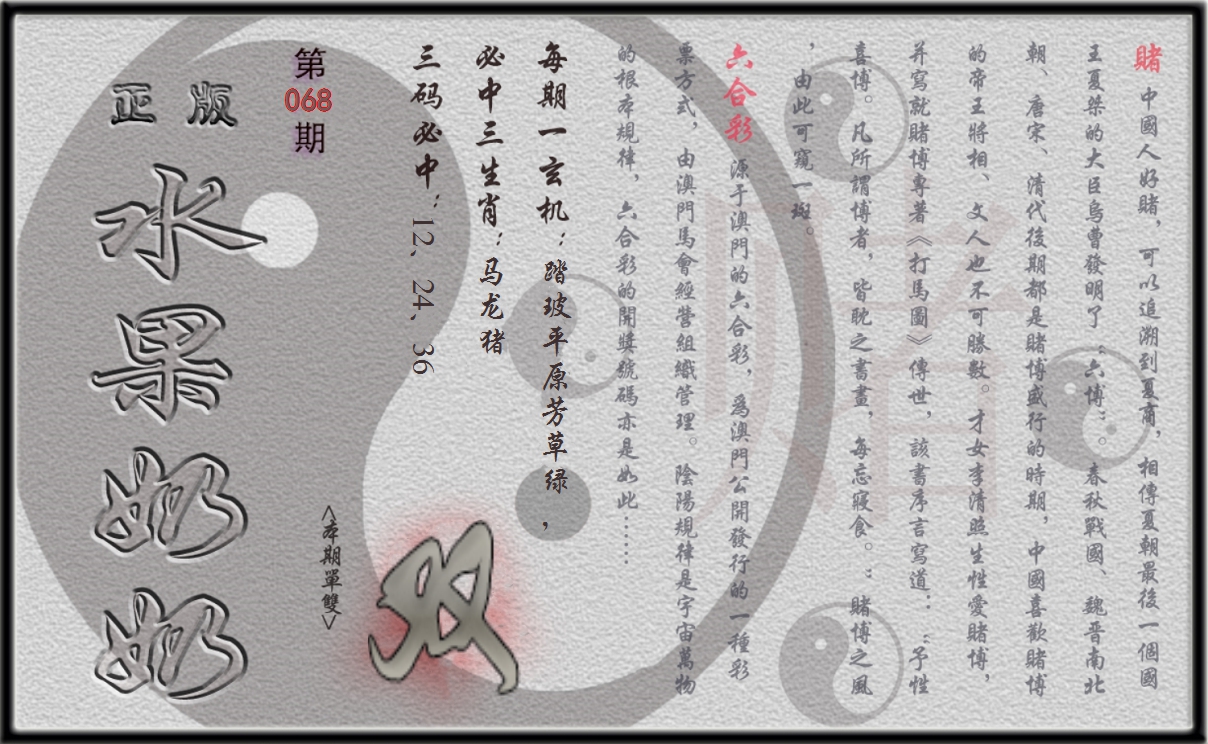 賭 中國人好賭，可以追溯到夏商，相傳夏朝最後一個國
王夏桀的大臣烏曹發明了“六博”。春秋戰國、魏晋南北
朝、唐宋、清代後期都是賭博盛行的時期，中國喜歡賭博
的帝王將相、文人也不可勝數。才女李清照生性愛賭博，
并寫就賭博專著《打馬圖》傳世，該書序言寫道：“予性
喜博。凡所謂博者，皆耽之書畫，每忘寢食。：賭博之風
，由此可窺一斑。
六合彩 源于澳門的六合彩，爲澳門公開發行的一種彩
票方式，由澳門馬會經營組織管理。陰陽規律是宇宙萬物
的根本規律，六合彩的開獎號碼亦是如此……
每期一玄机：踏玻平原芳草绿，
必中三生肖：马龙猪
三码必中：12，24，36
第
068
期
<本期單雙>
双
正版
水果奶奶
賭